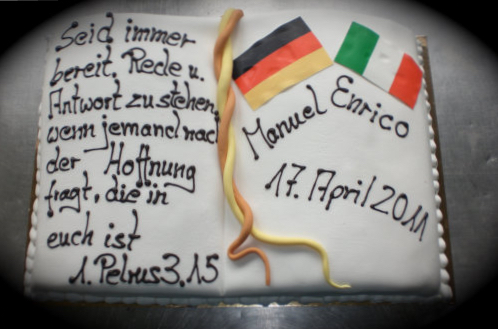 Seid immer
bereit, Rede u.
Antwort zu stehen,
wenn jemand nach
der Hoffnung
fragt, die in
euch ist
1. Petrus 3.15
Manuel Enrico
17. April 2011